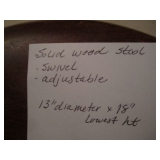 Solid wood stool
- swivel
- adjustable
13" diameter x 18"
lowest ht